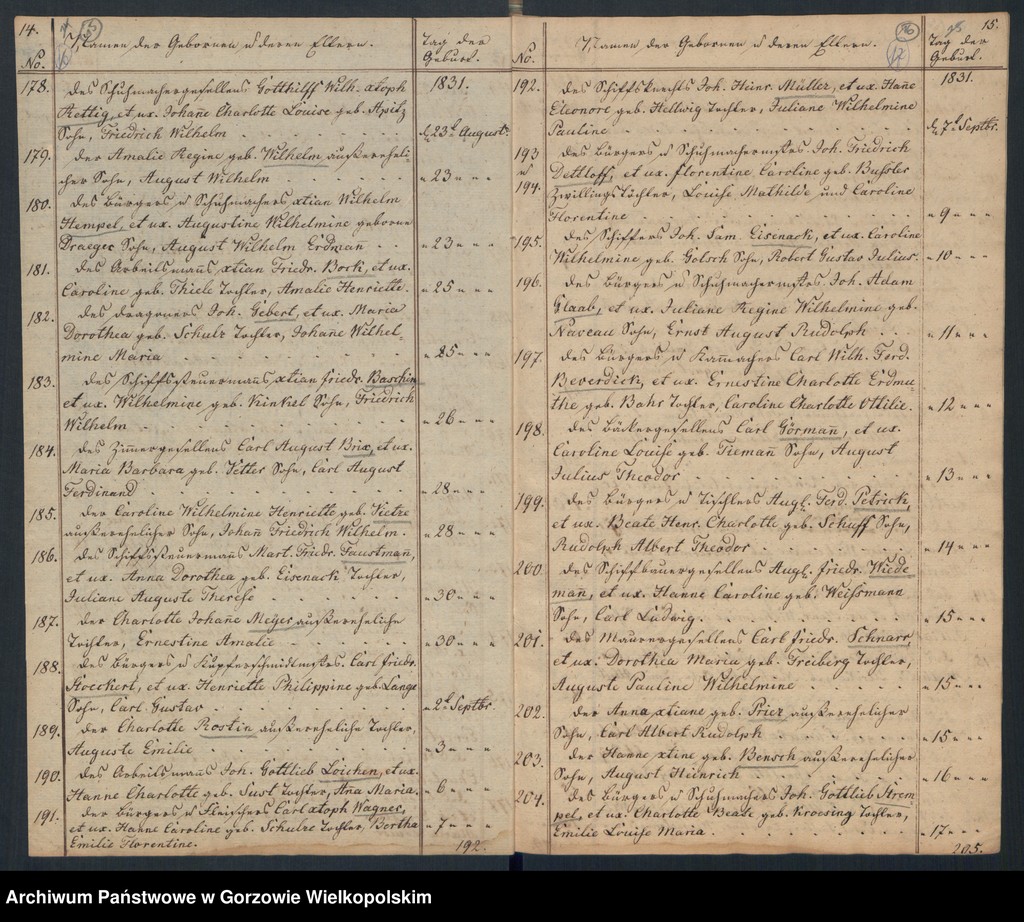 14.
No.
Namen der Gebornen u deren Eltern.
Tag der
Geburt.
178. des Schuhmachergesellens Gotthilff Wilh. xtoph
Rettig, et ux. Johañe Charlotte Louise geb. Apitz
Sohn, Friedrich Wilhelm
1831.
d. 23t August.
179. der Amalie Regine geb. Wilhelm außereheli-
cher Sohn, August Wilhelm
" 23 "
180. des Bürgers u Schuhmachers xtian Wilhelm
Hempel, et ux. Augustine Wilhelmine geborne
Draeger Sohn, August Wilhelm Erdman
" 23 "
181. des Arbeitsmañs xtian Friedr. Bock, et ux.
Caroline geb. Thiele Tochter, Amalie Henriette.
" 25 "
182. des Dragoners Joh. Gebert, et ux. Maria
Dorothea geb. Schulz Tochter, Johañe Wilhel-
mine Maria
" 25 "
183. des Schiffssteuermañs xtian Friedr. Baschin
et ux. Wilhelmine geb. Kinkel Sohn, Friedrich
Wilhelm
" 26 "
184. des Zimergesellens Carl August Brix, et ux.
Maria Barbara geb. Vetter Sohn, Carl August
Ferdinand
" 28 "
185. der Caroline Wilhelmine Henriette geb. Vietze
außerehelicher Sohn, Johañ Friedrich Wilhelm.
" 28 "
186. des Schiffssteuermañs Mart. Friedr. Faustmañ,
et ux. Anna Dorothea geb. Eisenack Tochter,
Juliane Auguste Therese
" 30 "
187. der Charlotte Johañe Meyer außereheliche
Tochter, Ernestine Amalie
" 30 "
188. des Bürgers u Kupferschmidtmstrs. Carl Friedr.
Stoeckert, et ux. Henriette Philippine geb. Lange
Sohn, Carl Gustav
" 2t Septbr.
189. der Charlotte Rostin außereheliche Tochter,
Auguste Emilie
" 3 "
190. des Arbeitsmañs Joh. Gottlieb Loichen, et ux.
Hanne Charlotte geb. Sust Tochter, Aña Maria.
" 6 "
191. der Bürgers u Fleischers Carl xtoph Wagner,
et ux. Hañe Caroline geb. Schulze Tochter, Bertha
Emilie Florentine.
" 7 "
192.
15.
No.
Namen der Gebornen u deren Eltern.
Tag der
Geburt.
192. des Schiffsknechts Joh. Heinr. Müller, et ux. Hañe
Eleonore geb. Hellwig Tochter, Juliane Wilhelmine
Pauline
1831.
d. 7t Septbr.
193 des Bürgers u Schuhmachermstrs. Joh. Friedrich
u Dettloff, et ux. Florentine Caroline geb. Bufsler
194. Zwillings Töchter, Louise Mathilde und Caroline
Florentine
" 9 "
195. des Schiffers Joh. Sam. Eisenack, et ux. Caroline
Wilhelmine geb. Golsch Sohn, Robert Gustav Julius.
" 10 "
196. des Bürgers u Schuhmachermstrs. Joh. Adam
Glaab, et ux. Juliane Regine Wilhelmine geb.
Naveau Sohn, Ernst August Rudolph
" 11 "
197. des Bürgers u Kam̃achers Carl Wilh. Ferd.
Beverdick, et ux. Ernestine Charlotte Erdmu-
the geb. Bahr Tochter, Caroline Charlotte Ottilie.
" 12 "
198. des Bäckergesellens Carl Görmañ, et ux.
Caroline Louise geb. Tiemañ Sohn, August
Julius Theodor
" 13 "
199. des Bürgers u Tischlers Aug. Ferd. Petrick,
et ux. Beate Henr. Charlotte geb. Schuff Sohn,
Rudolph Albert Theodor
" 14 "
200. des Schiffbauergesellens Aug. Friedr. Wiede
mañ, et ux. Hanne Caroline geb. Weissmann
Sohn, Carl Ludwig.
" 15 "
201. des Maurergesellens Carl Friedr. Schnarr,
et ux. Dorothea Maria geb. Freiberg Tochter,
Auguste Pauline Wilhelmine
" 15 "
202. der Anna xtiane geb. Priez außerehelicher
Sohn, Carl Albert Rudolph
" 15 "
203. der Hanne xtine geb. Bensch außerehelicher
Sohn, August Heinrich
" 16 "
204. des Bürgers u Schuhmachers Joh. Gottlieb Strem-
pel, et ux. Charlotte Beate geb. Kroesing Tochter,
Emilie Louise Maria.
" 17 "
205.
Archiwum Państwowe w Gorzowie Wielkopolskim